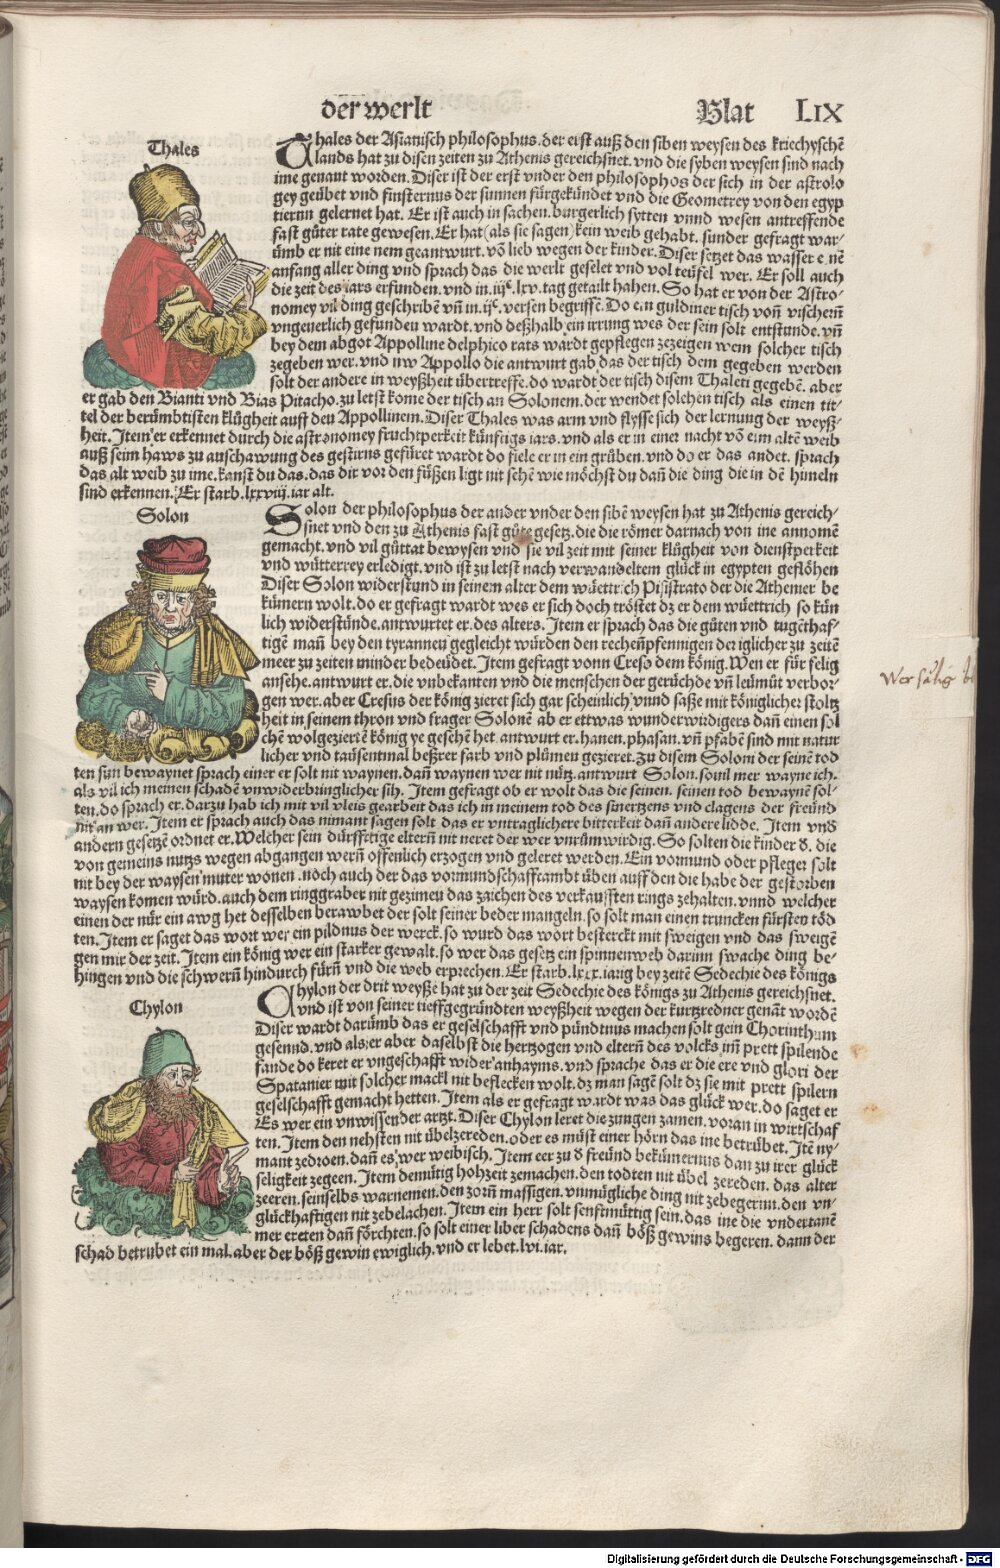 der werlt Blat LIX
Thales
Thales der Asianisch philosophus. der erst auß den siben weysen des kriechyschē
lands hat zu disen zeiten zu Athenis gereichsnet. vnd die syben weysen sind nach
ime genant worden. Diser ist der erst vnder den philosophos der sich in der astrolo
gey geübet vnd finsternus der sunnen fürgekündet vnd die Geometrey von den egyp
tiernn gelernet hat. Er ist auch in sachen. burgerlich sytten vnnd wesen antreffende
fast güter rate gewesen. Er hat (als sie sagen) kein weib gehabt. sunder gefragt war/
ümb er nit eine nem geantwurt. vō lieb wegen der kinder. Diser setzet das wasser e nē
anfang aller ding vnd sprach das die werlt geselet vnd vol teüfel wer. Er soll auch
die zeit des iars erfunden. vnd in. iijᶜ. lxv. tag getailt haben. So hat er von der Astro/
nomey vil ding geschribē vn̄ in. ijᶜ. versen begriffē. Do ein guldiner tisch von̄ vischern̄
vngeuerlich gefunden wardt. vnd deßhalb ein irrung wes der sein solt entstunde. vn̄
bey dem abgot Appolline delphico rats wardt gepflegen zezeigen wem solcher tisch
zegeben wer. vnd nw Appollo die antwurt gab das der tisch dem gegeben werden
solt der andere in weyßheit übertreffe. do wardt der tisch disem Thaleti gegebē. aber
er gab den Bianti vnd Bias Pitacho. zu letst kome der tisch an Solonem. der wendet solchen tisch als einen tit/
tel der berümbtisten klügheit auff den Appollinem. Diser Thales was arm vnd flysse sich der lernung der weyß/
heit. Item er erkennet durch die astronomey fruchtperkeit künftigs iars. vnd als er in einer nacht vō eim altē weib
auß seim haws zu auschawung des gestirns gefüret wardt do fiele er in ein grüben. vnd do er das andet. sprach
das alt weib zu ime. kanst du das. das dir vor den füßzen ligt nit sehē wie möchst du dan̄ die ding die in dē himeln
sind erkennen. Er starb. lxxviij. iar alt.
Solon
Solon der philosophus der ander vnder den sibē weysen hat zu Athenis gereich/
snet vnd den zu Athenis fast güte gesetz. die die römer darnach von ine annomē
gemacht. vnd vil güttat bewysen vnd sie vil zeit mit seiner klügheit von dienstperkeit
vnd wütterrey erledigt. vnd ist zu letst nach verwandeltem glück in egypten geflöhen
Diser Solon widerstund in seinem alter dem wüettrich Pisistrato der die Athemer be
kümern wolt. do er gefragt wardt wes er sich doch tröstet dz er dem wüettrich so kün
lich widerstünde. antwurtet er. des alters. Item er sprach das die güten vnd tugēthaf/
tigē man̄ bey den tyrannen gegleicht würden den rechen̄pfennigen der iglicher zu zeitē
meer zu zeiten minder bedeüdet. Item gefragt vonn Creso dem könig. Wen er für selig
ansehe. antwurt er. die vnbekanten vnd die menschen der gerüchde vn̄ leümüt verbor/
gen wer. aber Cresus der könig zieret sich gar scheinlich vnnd saße mit königlicher stoltz
heit in seinem thron vnd frager Solonē ab er ettwas wunderwirdigers dan̄ einen sol
chē wolgezierte könig ye gesehē het. antwurt er. hanen. phasan. vn̄ pfabē sind mit natur
licher vnd taüsentmal beßrer farb vnd plümen gezieret. Zu disem Soloni der seinē tod
ten sun bewaynet sprach einer er solt nit waynen. dan̄ waynen wer nit nütz. antwurt Solon. souil mer wayne ich.
als vil ich meinen schadē vnwiderbringlicher sih. Item gefragt ob er wolt das die seinen. seinen tod bewaynē sol/
ten. do sprach er. darzu hab ich mit vil vleis gearbeit das ich in meinem tod des smertzens vnd clagens der freünd
nit an wer. Item er sprach auch das nimant sagen solt das er vntraglichere bitterkeit dan̄ andere lidde. Item vnd
andern gesetzē ordnet er. Welcher sein dürfftige eltern̄ nit neret der wer vnrümwirdig. So solten die kinder d. die
von gemeins nutzs wegen abgangen wern̄ offenlich erzogen vnd geleret werden. Ein vormund oder pfleger solt
nit bey der waysen muter wonen. noch auch der das vormundschafftambt üben auff den die habe der gestorben
waysen komen würd. auch dem ringgraber nit gezimen das zaichen des verkaufften rings zehalten. vnnd welcher
einen der nür ein awg het desselben berawbet der solt seiner beder mangeln. so solt man einen truncken fürsten töd
ten. Item er saget das wort wer ein pildnus der werck. so wurd das wort besterckt mit sweigen vnd das sweigē
gen mir der zeit. Item ein könig wer ein starker gewalt. so wer das gesetz ein spinnenweb darinn swache ding be/
hingen vnd die schwern̄ hindurch fürn̄ vnd die web erprechen. Er starb. lxxx. iarig bey zeitē Sedechie des königs
Chylon
Chylon der drit weyße hat zu der zeit Sedechie des königs zu Athenis gereichsnet.
vnd ist von seiner tieffgegründten weyßheit wegen der kurtzredner genāt wordē
Diser wardt darümb das er geselschafft vnd pündtnus machen solt gein Chorinthum
gesennd. vnd als er aber daselbst die hertzogen vnd eltern̄ des volcks im̄ prett spilende
fande do keret er vngeschafft wider anhayms. vnd sprache das er die ere vnd glori der
Spatanier mit solcher mackl nit beflecken wolt. dz man sagē solt dz sie mit prett spilern
geselschafft gemacht hetten. Item als er gefragt wardt was das glück wer. do saget er
Es wer ein vnwissender artzt. Diser Chylon leret die zungen zamen. voran in wirtschaf
ten. Item den nehsten nit übelzereden. oder es müst einer hörn das ine betrübet. Itē ny/
mant zedroen. dan̄ es wer weibisch. Item eer zu d freünd bekümernus dan zu irer glück
seligkeit zegeen. Item demütig hohzeit zemachen. den todten nit übel zereden. das alter
zeeren. seinselbs warnemen. den zorn̄ massigen. vnmügliche ding nit zebegernn. den vn/
glückhaftigen nit zebelachen. Item ein herr solt senftmüttig sein. das ine die vndertanē
mer ereten dan̄ förchten. so solt einer liber schadens dan̄ böß gewins begeren. dann der
schad betrubet ein mal. aber der böß gewin ewiglich. vnd er lebet. lvi. iar.
Digitalisierung gefördert durch die Deutsche Forschungsgemeinschaft - DFG